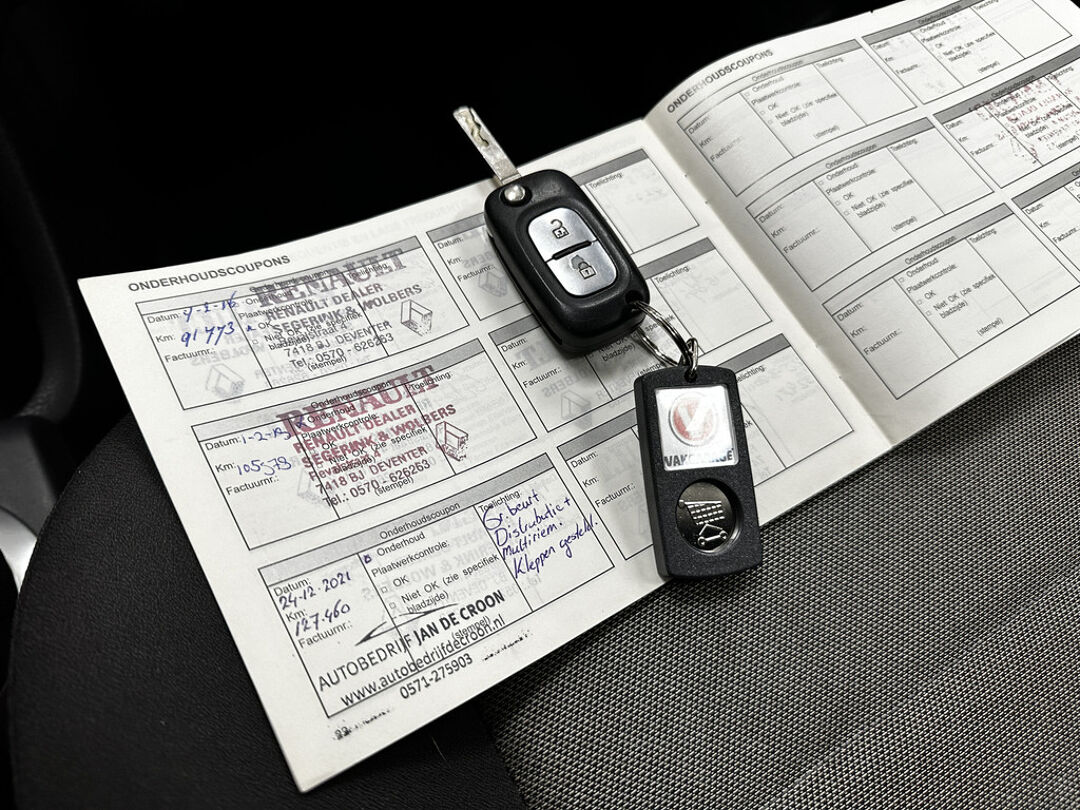 ONDERHOUDSCOUPONS
Onderhoudscoupon
Datum: 4-2-16
Km: 91773
Factuurnr.:
Onderhoud
Plaatwerkcontrole:
OK
Niet OK (zie specifiek
bladzijde)
(stempel)
Toelichting:
RENAULT
RENAULT DEALER
SEGERINK & WOLBERS
7418 BJ DEVENTER
Tel.: 0570 - 626263
Onderhoudscoupon
Datum:
Km: 105579
Factuurnr.:
Onderhoud
Plaatwerkcontrole:
OK
Niet OK (zie specifiek
(stempel)
Toelichting:
RENAULT
RENAULT DEALER
SEGERINK & WOLBERS
7418 BJ DEVENTER
Tel.: 0570 - 626263
Onderhoudscoupon
Datum:
24-12-2021
Km:
127.460
Factuurnr.:
Onderhoud
Plaatwerkcontrole:
OK
Niet OK (zie specifiek
bladzijde)
(stempel)
Toelichting:
Gr. beurt
Distributie +
Multiriem.
Kleppen gesteld.
AUTOBEDRIJF JAN DE CROON
www.autobedrijfdecroon.nl
0571-275903
22
Datum:
Km:
Toelichting:
Toelichting:
bladzijde)
Toelichting:
VAKGARAGE
ONDERHOUDSCOUPONS
Onderhoudscoupon
Datum:
Km:
Factuurnr.:
Onderhoud
Plaatwerkcontrole:
OK
Niet OK (zie specifiek
bladzijde)
(stempel)
Toelichting:
Onderhoudscoupon
Datum:
Km:
Factuurnr.:
Onderhoud
Plaatwerkcontrole:
OK
Niet OK (zie specifiek
bladzijde)
(stempel)
Toelichting:
Onderhoudscoupon
Datum:
Km:
Factuurnr.:
Onderhoud
Plaatwerkcontrole:
OK
Niet OK (zie specifiek
bladzijde)
(stempel)
Toelichting:
Onderhoudscoupon
Datum:
Km:
Factuurnr.:
Onderhoud
Plaatwerkcontrole:
OK
Niet OK (zie specifiek
bladzijde)
(stempel)
Toelichting:
Datum:
Km:
Factuurnr.:
Onderhoud
Plaatwerkcontrole:
OK
(stempel)
Datum:
Km: